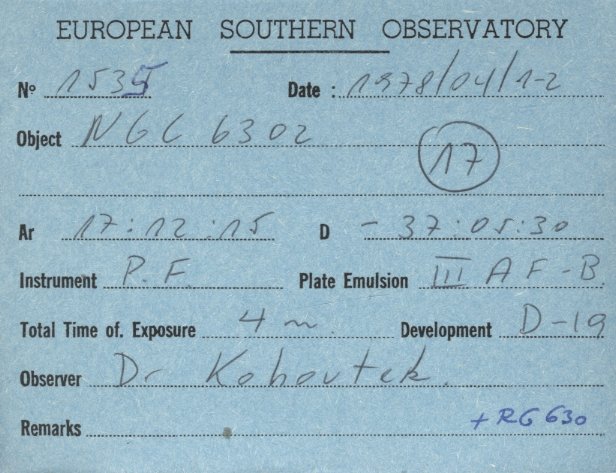 EUROPEAN SOUTHERN OBSERVATORY
Nº 1535 Date : 1978/04/1-2
Object NGC 6302
17
Ar 17:12:15 D -37:05:30
Instrument P.F. Plate Emulsion III AF-B
Total Time of. Exposure 4 m. Development D-19
Observer Dr Kohoutek.
Remarks + RG 630